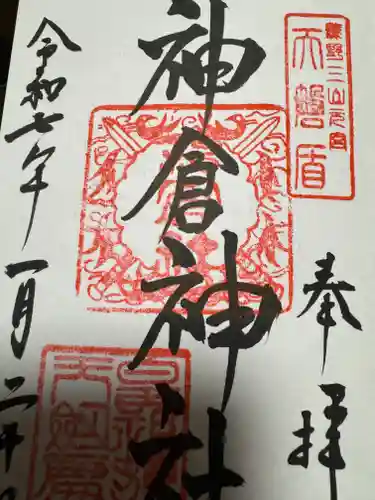 奉拝
熊野三山元宮
天磐盾
神倉神社
令和七年一月二十